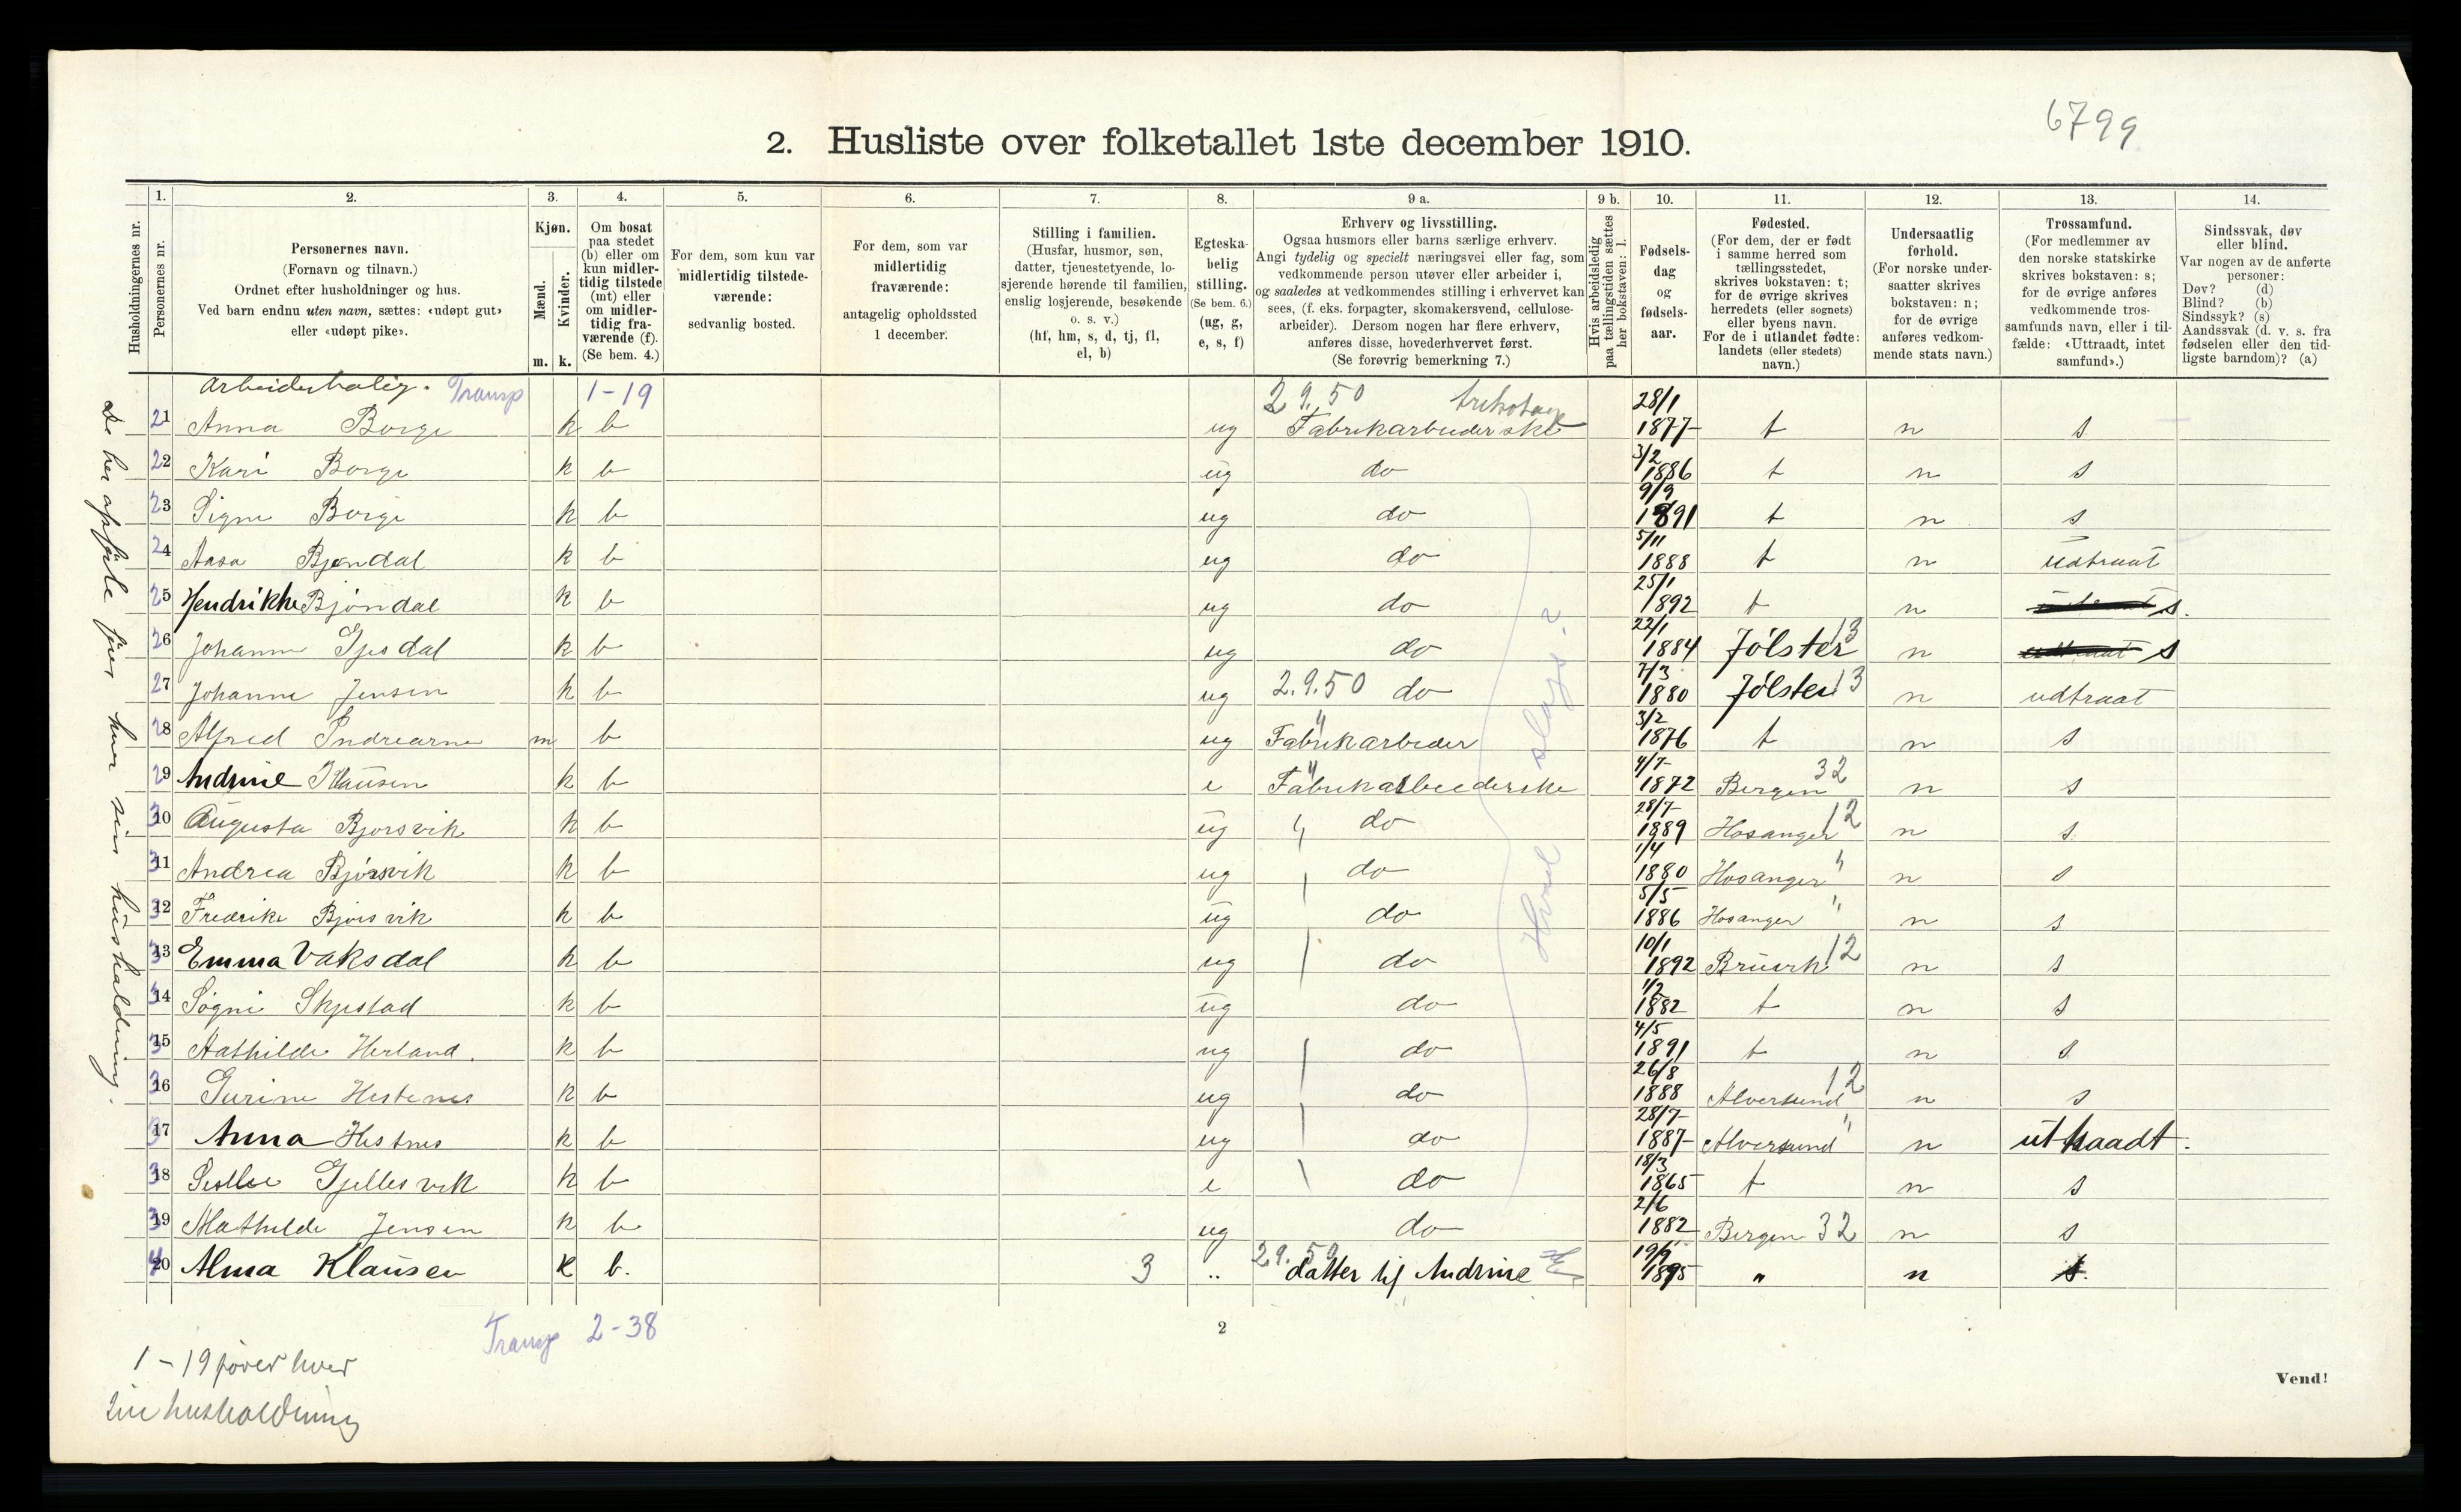 6799
2. Husliste over folketallet 1ste december 1910.
Husholdningernes nr.
1. Personernes nr.
2. Personernes navn.
(Fornavn og tilnavn.)
Ordnet efter husholdninger og hus.
Ved barn endnu uten navn, sættes: «udøpt gut»
eller «udøpt pike».
3. Kjøn.
Mænd. m.
Kvinder. k.
4. Om bosat
paa stedet
(b) eller om
kun midler-
tidig tilstede
(mt) eller
om midler-
tidig fra-
værende (f).
(Se bem. 4.)
5. For dem, som kun var
midlertidig tilstede-
værende:
sedvanlig bosted.
6. For dem, som var
midlertidig
fraværende:
antagelig opholdssted
1 december.
7. Stilling i familien.
(Husfar, husmor, søn,
datter, tjenestetyende, lo-
sjerende hørende til familien,
enslig losjerende, besøkende
o. s. v.)
(hf, hm, s, d, tj, fl,
el, b)
8. Egteska-
belig
stilling.
(Se bem. 6.)
(ug, g,
e, s, f)
9 a. Erhverv og livsstilling.
Ogsaa husmors eller barns særlige erhverv.
Angi tydelig og specielt næringsvei eller fag, som
vedkommende person utøver eller arbeider i,
og saaledes at vedkommendes stilling i erhvervet kan
sees, (f. eks. forpagter, skomakersvend, cellulose-
arbeider). Dersom nogen har flere erhverv,
anføres disse, hovederhvervet først.
(Se forøvrig bemerkning 7.)
9 b. Hvis arbeidsledig
paa tællingstiden sættes
her bokstaven: l.
10. Fødsels-
dag
og
fødsels-
aar.
11. Fødested.
(For dem, der er født
i samme herred som
tællingsstedet,
skrives bokstaven: t;
for de øvrige skrives
herredets (eller sognets)
eller byens navn.
For de i utlandet fødte:
landets (eller stedets)
navn.)
12. Undersaatlig
forhold.
(For norske under-
saatter skrives
bokstaven: n;
for de øvrige
anføres vedkom-
mende stats navn.)
13. Trossamfund.
(For medlemmer av
den norske statskirke
skrives bokstaven: s;
for de øvrige anføres
vedkommende tros-
samfunds navn, eller i til-
fælde: «Uttraadt, intet
samfund».)
14. Sindssvak, døv
eller blind.
Var nogen av de anførte
personer:
Døv? (d)
Blind? (b)
Sindssyk? (s)
Aandssvak (d. v. s. fra
fødselen eller den tid-
ligste barndom)? (a)
Arbeiderbolig. Transp 1-19
21 Anna Borge k b ug 2.9.50 trikotage Fabrikarbeiderske 28/1 1877 t n s
22 Kari Borge k b ug do 3/2 1886 t n s
23 Signe Borge k b ug do 9/9 1891 t n s
24 Aasa Bjøndal k b ug do 5/11 1888 t n udtraat
25 Hendrikke Bjøndal k b ug do 25/1 1892 t n s.
26 Johanne Gjesdal k b ug do 22/1 1884 Jølster 13 n s
27 Johanne Jensen k b ug 2.9.50 do 7/3 1880 Jølster 13 n udtraat
28 Alfred Indrearne m b ug " Fabrikarbeider 3/2 1876 t n s
29 Andrine Klausen k b e " Fabrikarbeiderske 4/7 1872 Bergen 32 n s
30 Augusta Bjørsvik k b ug " do 28/7 1889 Hosanger 12 n s
31 Andrea Bjørsvik k b ug do 1/4 1880 Hosanger " n s
32 Fredrike Bjørsvik k b ug do 5/5 1886 Hosanger " n s
33 Emma Vaksdal k b ug do 10/1 1892 Bruvik 12 n s
34 Søgni Skjestad k b ug do 1/2 1882 t n s
35 Aathilde Herland. k b ug do 4/5 1891 t n s
36 Gurine Hestenes k b ug do 26/8 1888 Alversund 12 n s
37 Anna Hestnes k b ug do 28/7 1887 Alversund " n utraadt.
38 Gjellesvik k b e do 18/3 1865 t n s
39 Mathilde Jensen k b ug do 2/6 1882 Bergen 32 n s
40 Alma Klausen k b. 3 „ 2.9.50 datter til Andrine 1895 " n s.
De her anførte fører hver sin husholdning.
Hvad slags?
Transp 2-38
2
1-19 fører hver
sin husholdning
Vend!